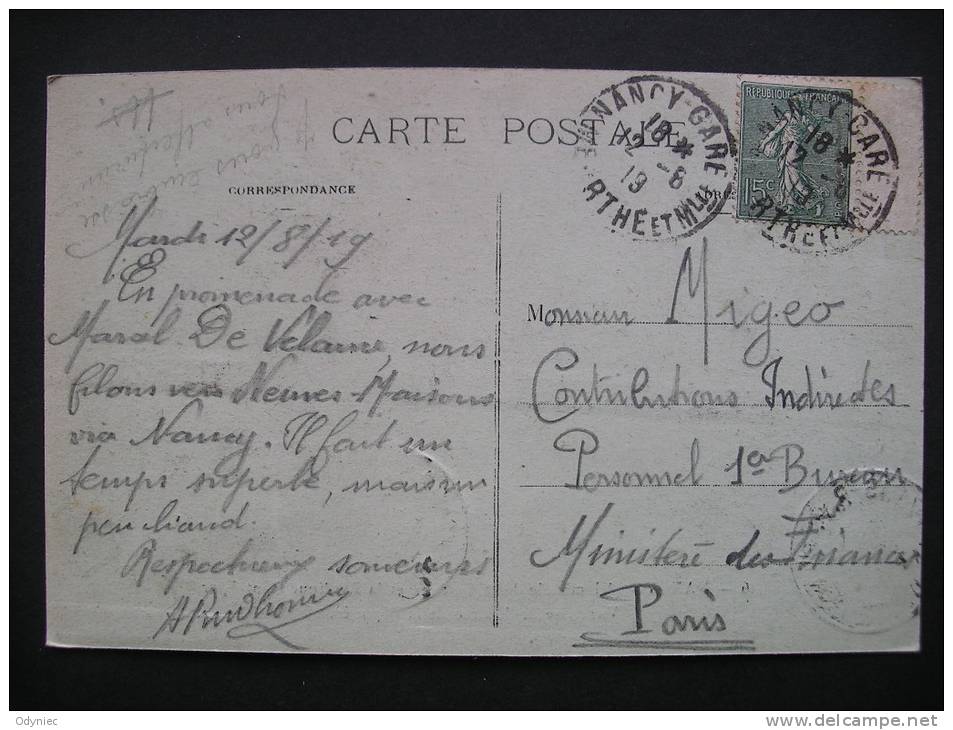 CARTE POSTALE
CORRESPONDANCE
NANCY-GARE
18 *
12 -8
19
RTHE ET MLLE
REPUBLIQUE FRANÇAISE
15c
NANCY GARE
18 *
12
RTHE ET MLLE
Mardi 12/8/19
En promenade avec
Marcel De Velaine, nous
filons vers Neuves-Maisons
via Nancy. Il fait un
temps superbe, mais un
peu chaud.
Respectueux souvenirs
APrudhomme
Monsieur Migeo
Contributions Indirectes
Personnel 1er Bureau
Ministère des Finances
Paris
Odyniec
http://www.delcampe.net